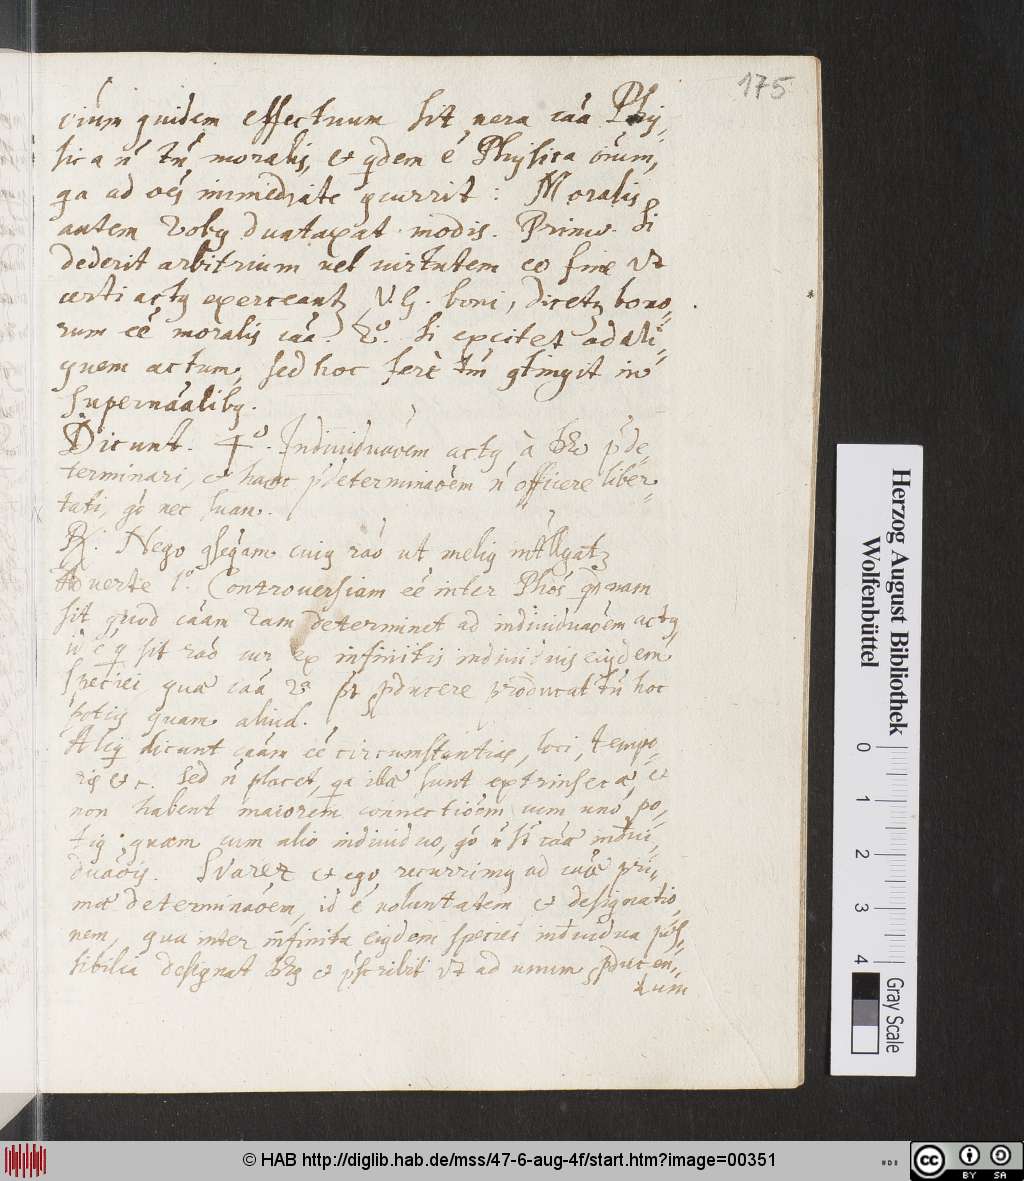 175
quidem effectuum sit vera caã Phy,
sica ñ tñ moralis, et qdem é Physica
qa ad oẽs immediate Moralis
autem duntaxat modis. Primo. Si
dederit arbitrium vel virtutem eo fine vt
certi actꝰ exerceant V.G. boni, dicet bono,
rum eé moralis caã. 2º. Si excitet ad ali
quem actum, sed hoc ferè tm̃ in
supernãalibꝰ.
Dicunt. 4º. actꝰ à pde,
terminari, et hanc pdeterminaõem ñ officere liber,
tati, gò nec suam.
R. Nego cuiꝰ rãõ ut meliꝰ
Aduerte 1º Controuersiam eé inter Phõs qdnam
sit quod caãm 2am determinet ad indiuiduaõem actꝰ,
id é q sit rãõ cur ex infinitis indiuiduis eiꝰdem
speciei quæ caã 2ª pt pducere producat tñ hoc
potiꝰ quam aliud.
Aliq dicunt caãm eé circumstantias, loci, tempo,
ris etc. sed ñ placet, qa illæ sunt extrinsecæ, et
non habent maiorem connectiõem cum uno po,
tiꝰ quam cum alio indiuiduo, gò ñ st caãæ indiui,
duaõis. Svarez et ego recurrimꝰ ad caãæ pri,
mæ determinaõem, id é voluntatem et designatio,
nem, qua inter infinita eiꝰdem speciei indiuidua pos,
sibilia designat et pscribit vt ad unum pducen,
dum
Herzog August Bibliothek
Wolfenbüttel
0 1 2 3 4
Gray Scale
© HAB http://diglib.hab.de/mss/47-6-aug-4f/start.htm?image=00351
cc BY SA